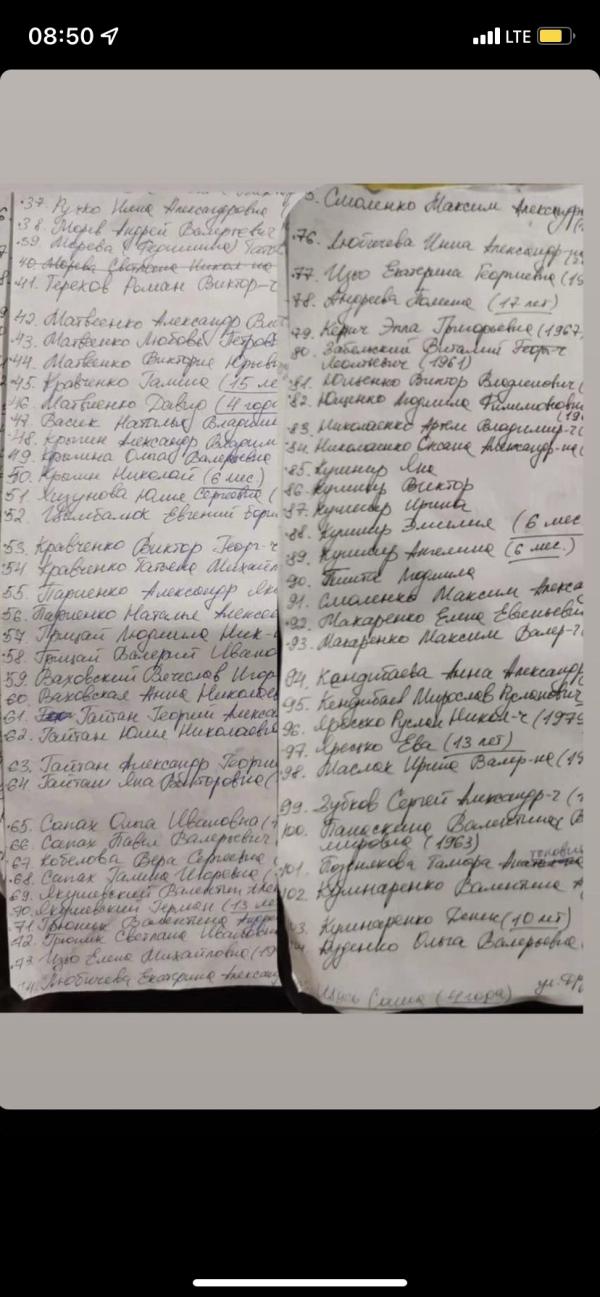 08:50
LTE
37. Ручко Инна Александровна (
38. Морев Андрей Валерьевич
39. Морева
40. Морева Светлана Никол-на
41. Терехов Роман Виктор-ч
42. Матвеенко Александр
43. Матвиенко Любовь Петров
44. Матвиенко Виктория Юрьев
45. Кравченко Галина (15 ле
46. Матвиенко Давид (4 год
47. Васик Наталья Владими
48. Крытин Александр Владим
49. Крытина Ольга Валерьевна
50. Крытин Николай (6 мес)
51. Юлия Сергеевна (
52. Цымбалюк Евгений
53. Кравченко Виктор Георг-ч
54. Кравченко Татьяна Михайл
55. Париенко Александр
56. Париенко Наталья Алексан
57. Грицай Людмила Ник-
58. Грицай Валерий Ивано
59. Ваховский Вячеслав Игор
60. Ваховская Анна Николаев
61. Гайтан Георгий Алекса
62. Гайтан Юлия Николаевна
63. Гайтан Александр Георги
64. Гайтан Яна Викторовна (
65. Сапах Ольга Ивановна (1
66. Сапах Павел Валерьевич
67. Кобелова Вера Сергеевна
68. Сапах Галина Игоревна (
69. Якушевский Валентин
70. Якушевский Герман (13 ле
71. Валентина
72. Светлана Ивановн
73. Цзю Елена Михайловна (19
74. Любичева Екатерина Александ
5. Смоленко Максим Александр
76. Любичева Инна Александр-
77. Цзю Екатерина Георгиевна (19
78. Андреева Полина (17 лет)
79. Керич Элла Григорьевна (1967
80. Забельский Виталий Георг-ч
Леонтьевич (1961)
81. Ющенко Виктор Владленович (
82. Ющенко Людмила Филимоновна
(19
83. Николаенко Артем Владимир-ч (
84. Николаенко Оксана Александр-на (
85. Кушнир Яна
86. Кушнир Виктор
87. Кушнир Ирина
88. Кушнир Эмилия (6 мес
89. Кушнир Ангелина (6 мес.)
90. Людмила
91. Смоленко Максим Алекса
92. Макаренко Елена Евгеньев
93. Макаренко Максим Валер-ч
94. Кандибаева Анна Александр
95. Кендибаев Мирослав Русланович
96. Яресько Руслан Никол-ч (1979
97. Ярецко Ева (13 лет)
98. Маслак Ирина Валер-на (19
99. Зубков Сергей Александр-ч (
100. Панаскина Валентина В
мировна (1963)
101. Позднякова Тамара
102. Кушнаренко Валентина
03. Кушнаренко Денис (10 лет)
Руденко Ольга Валерьевна
ул.
Саша (4 года)